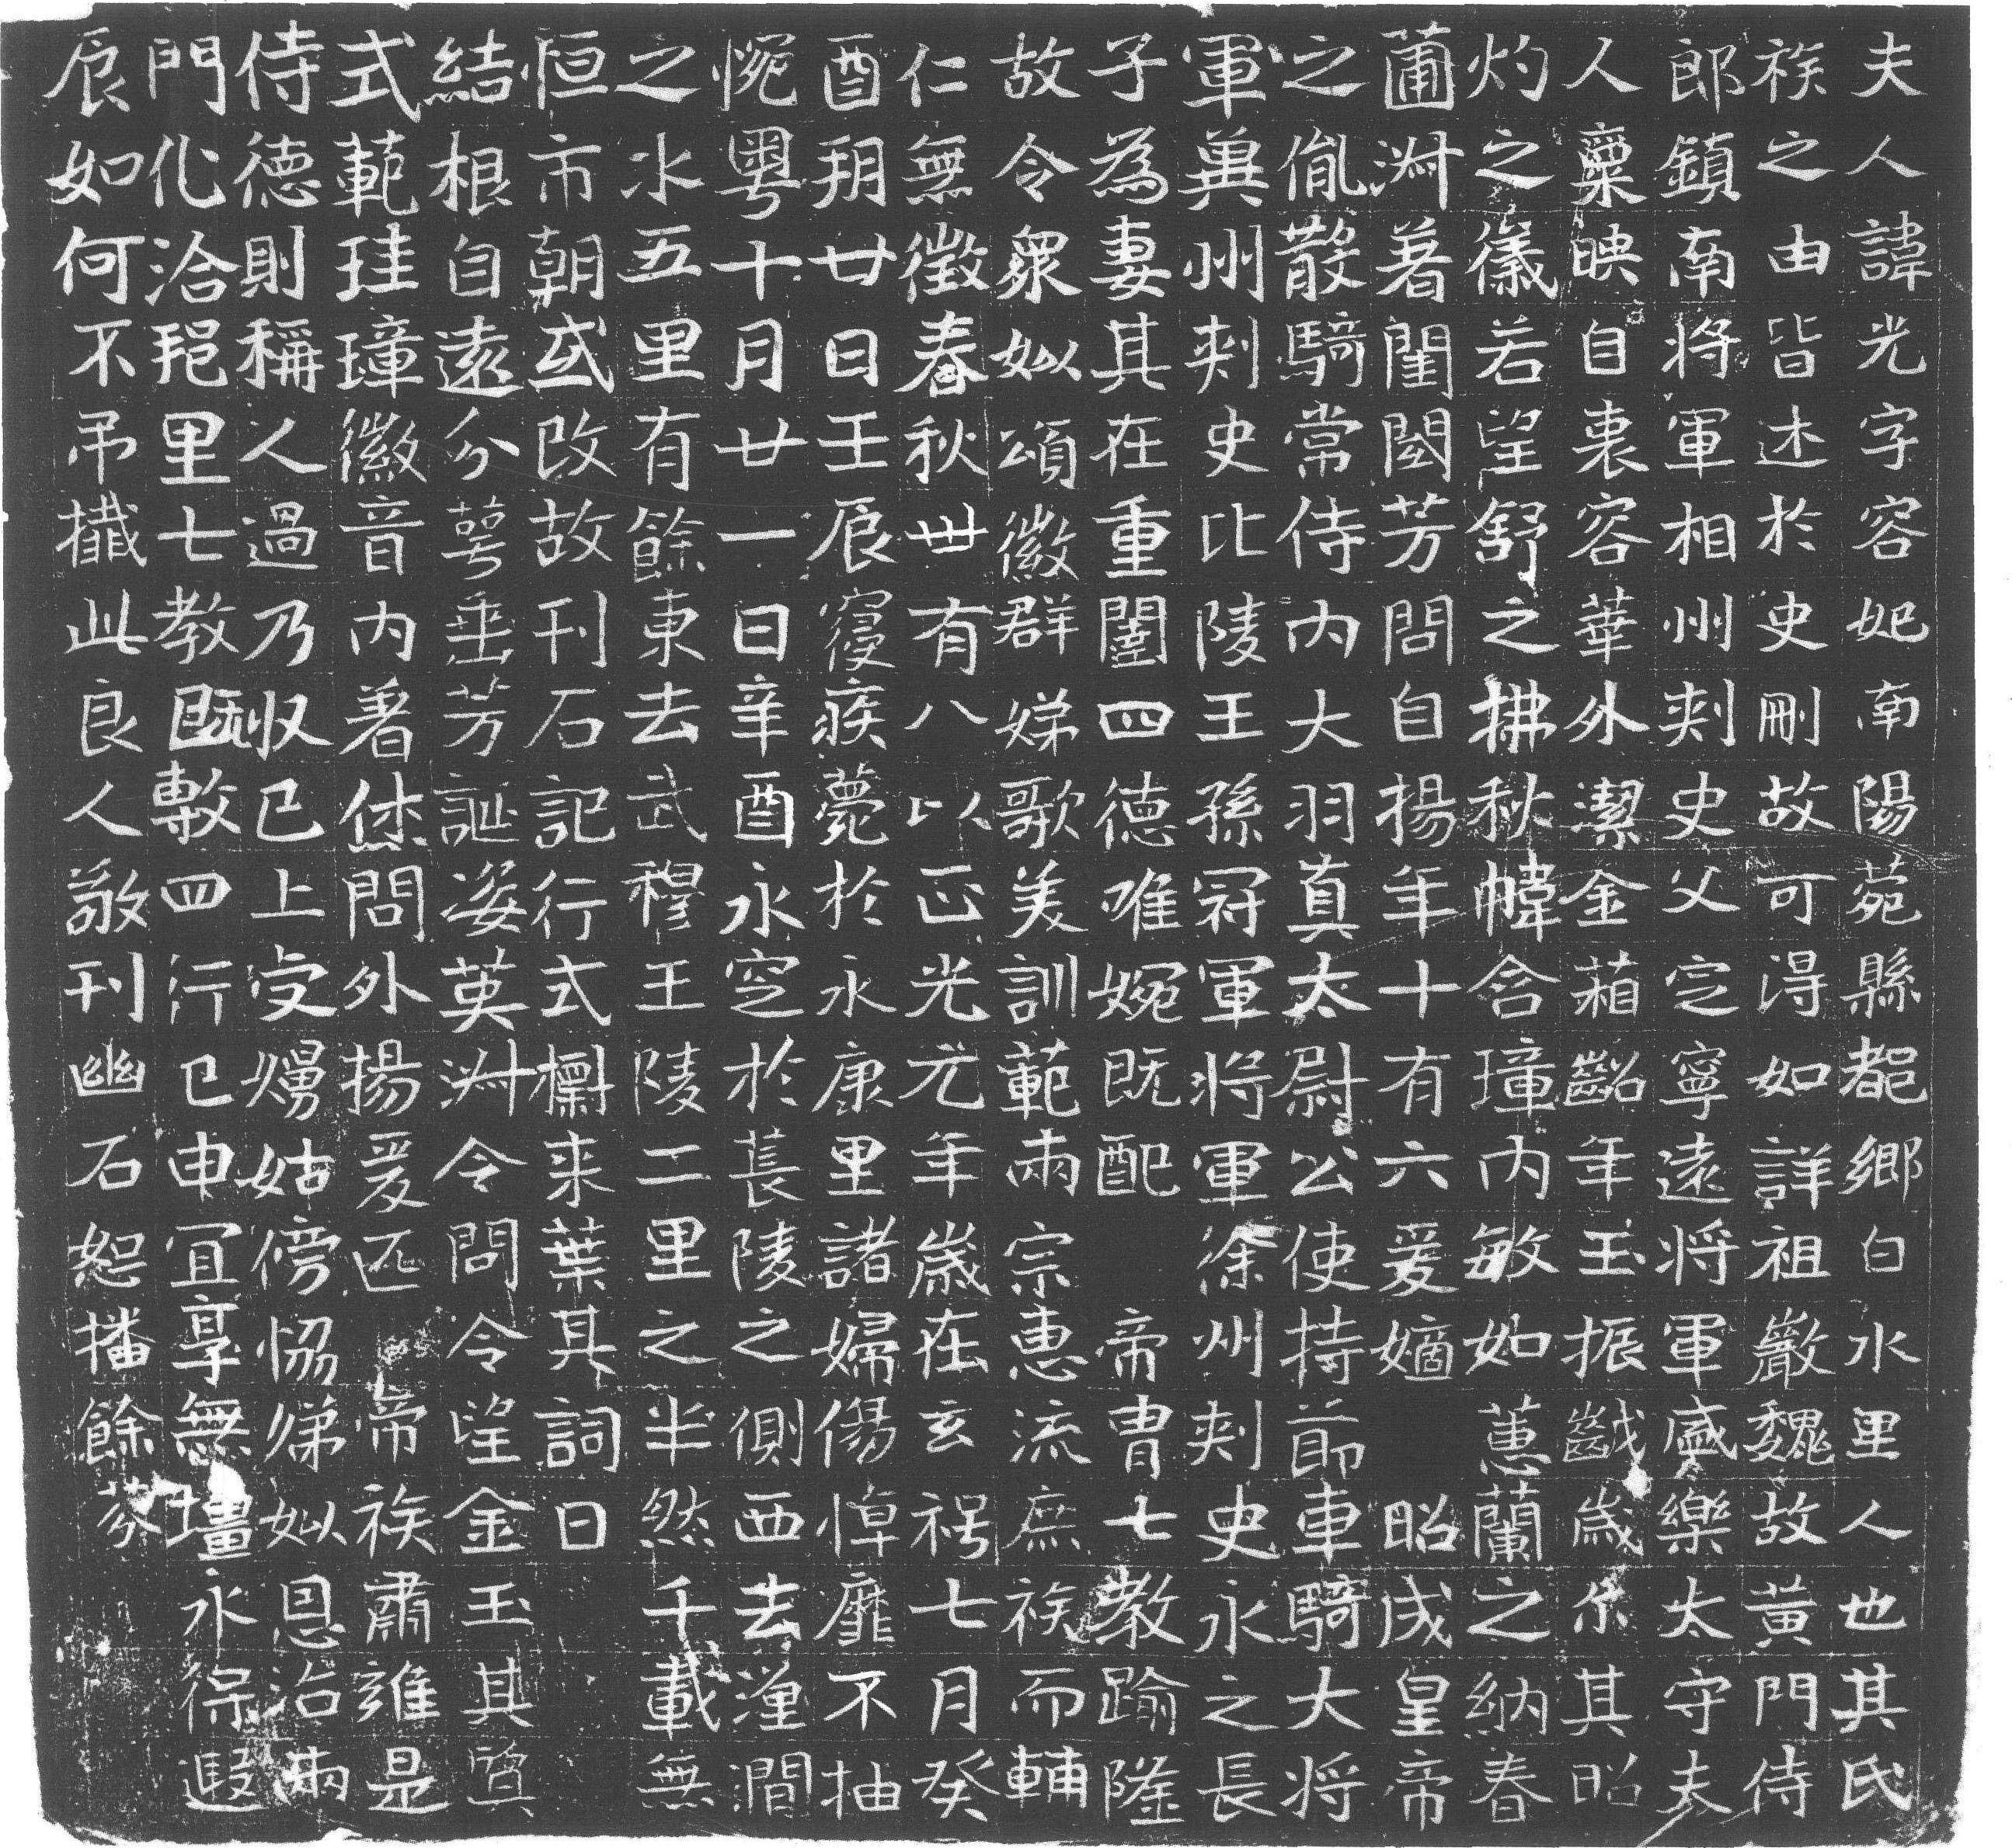 夫人諱光字容妃南陽菀縣都鄉白水里人也其氏
族之由皆述於史刪故可得如詳祖巖魏故黃門侍
郎鎮南將軍相州刺史父定寧遠將軍盛樂太守夫
人稟映自衷容華外潔金葙齠年玉振齔歲尒其昭
灼之儀若望舒之拂秋幃含璋內敏如蕙蘭之納春
圃淋著閨閫芳問自揚年十有六爰嫡昭成皇帝
之胤散騎常侍內大羽真太尉公使持節車騎大將
軍兾州刺史比陵王孫冠軍將軍徐州刺史永之長
子為妻其在重闈四德唯婉既配帝胄七教踰隆
故令眾姒頌徽群娣歌美訓範兩宗惠流庶族而輔
仁無徵春秋卌有八以正光元年歲在玄枵七月癸
酉玥廿日壬辰寢疾薨於永康里諸婦傷悼靡不抽
惋粵十月廿一日辛酉永窆於萇陵之側西去瀍澗
之水五里有餘東去武穆王陵二里之半然千載無
恒市朝或改故刊石記行式櫥來葉其詞曰
結根自遠分萼垂芳誕姿英淋令問令望金玉其質
式範珪璋徽音內著休問外揚爰匹帝族肅雍是
侍德則稱人過乃收已上受嫪姑傍協娣姒恩洽兩
門化洽邕里七教既敷四行已申冝享無壃永保遐
辰如何不弔摲此良人敬刊幽石恕播餘芬